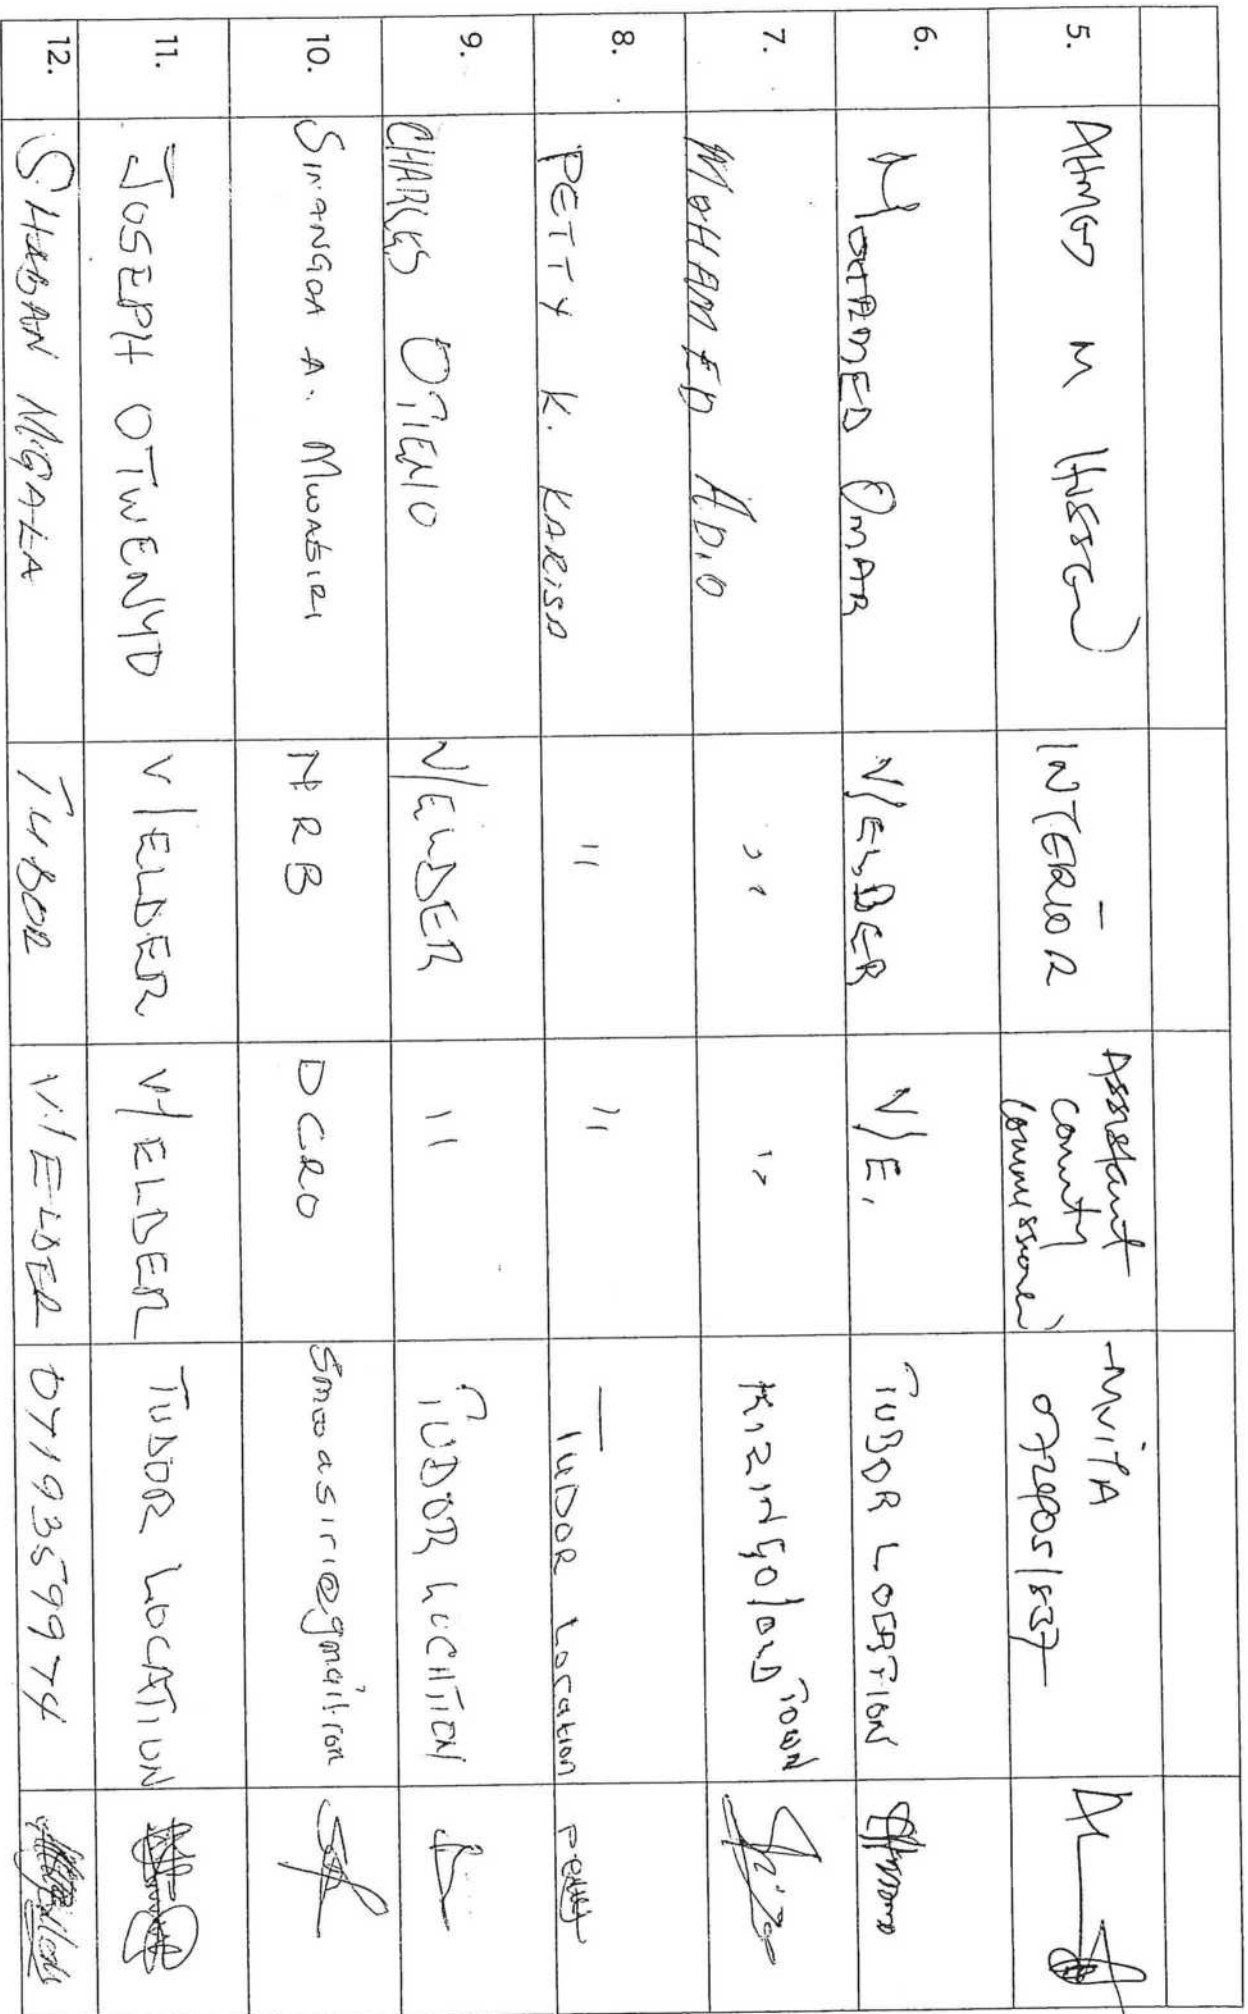 5. AHMED M HASSAN INTERIOR Assistant County Commissioner -MVITA
6. MOHAMED OMAR V/ELDER V/E. TUDOR LOCATION
7. MOHAMED ADIO ,, ,, KIZINGO/OLD TOWN
8. PETTY K. KARISA " " TUDOR Location Petty
9. CHARLES OTIENO V/ELDER " TUDOR LOCATION
10. SIMANGOA A. MWASIRI NRB DCRO
11. JOSEPH OTWENYO V/ELDER V/ELDER TUDOR LOCATION
12. SHABAN MIGALA TUDOR V/ELDER 0719359974